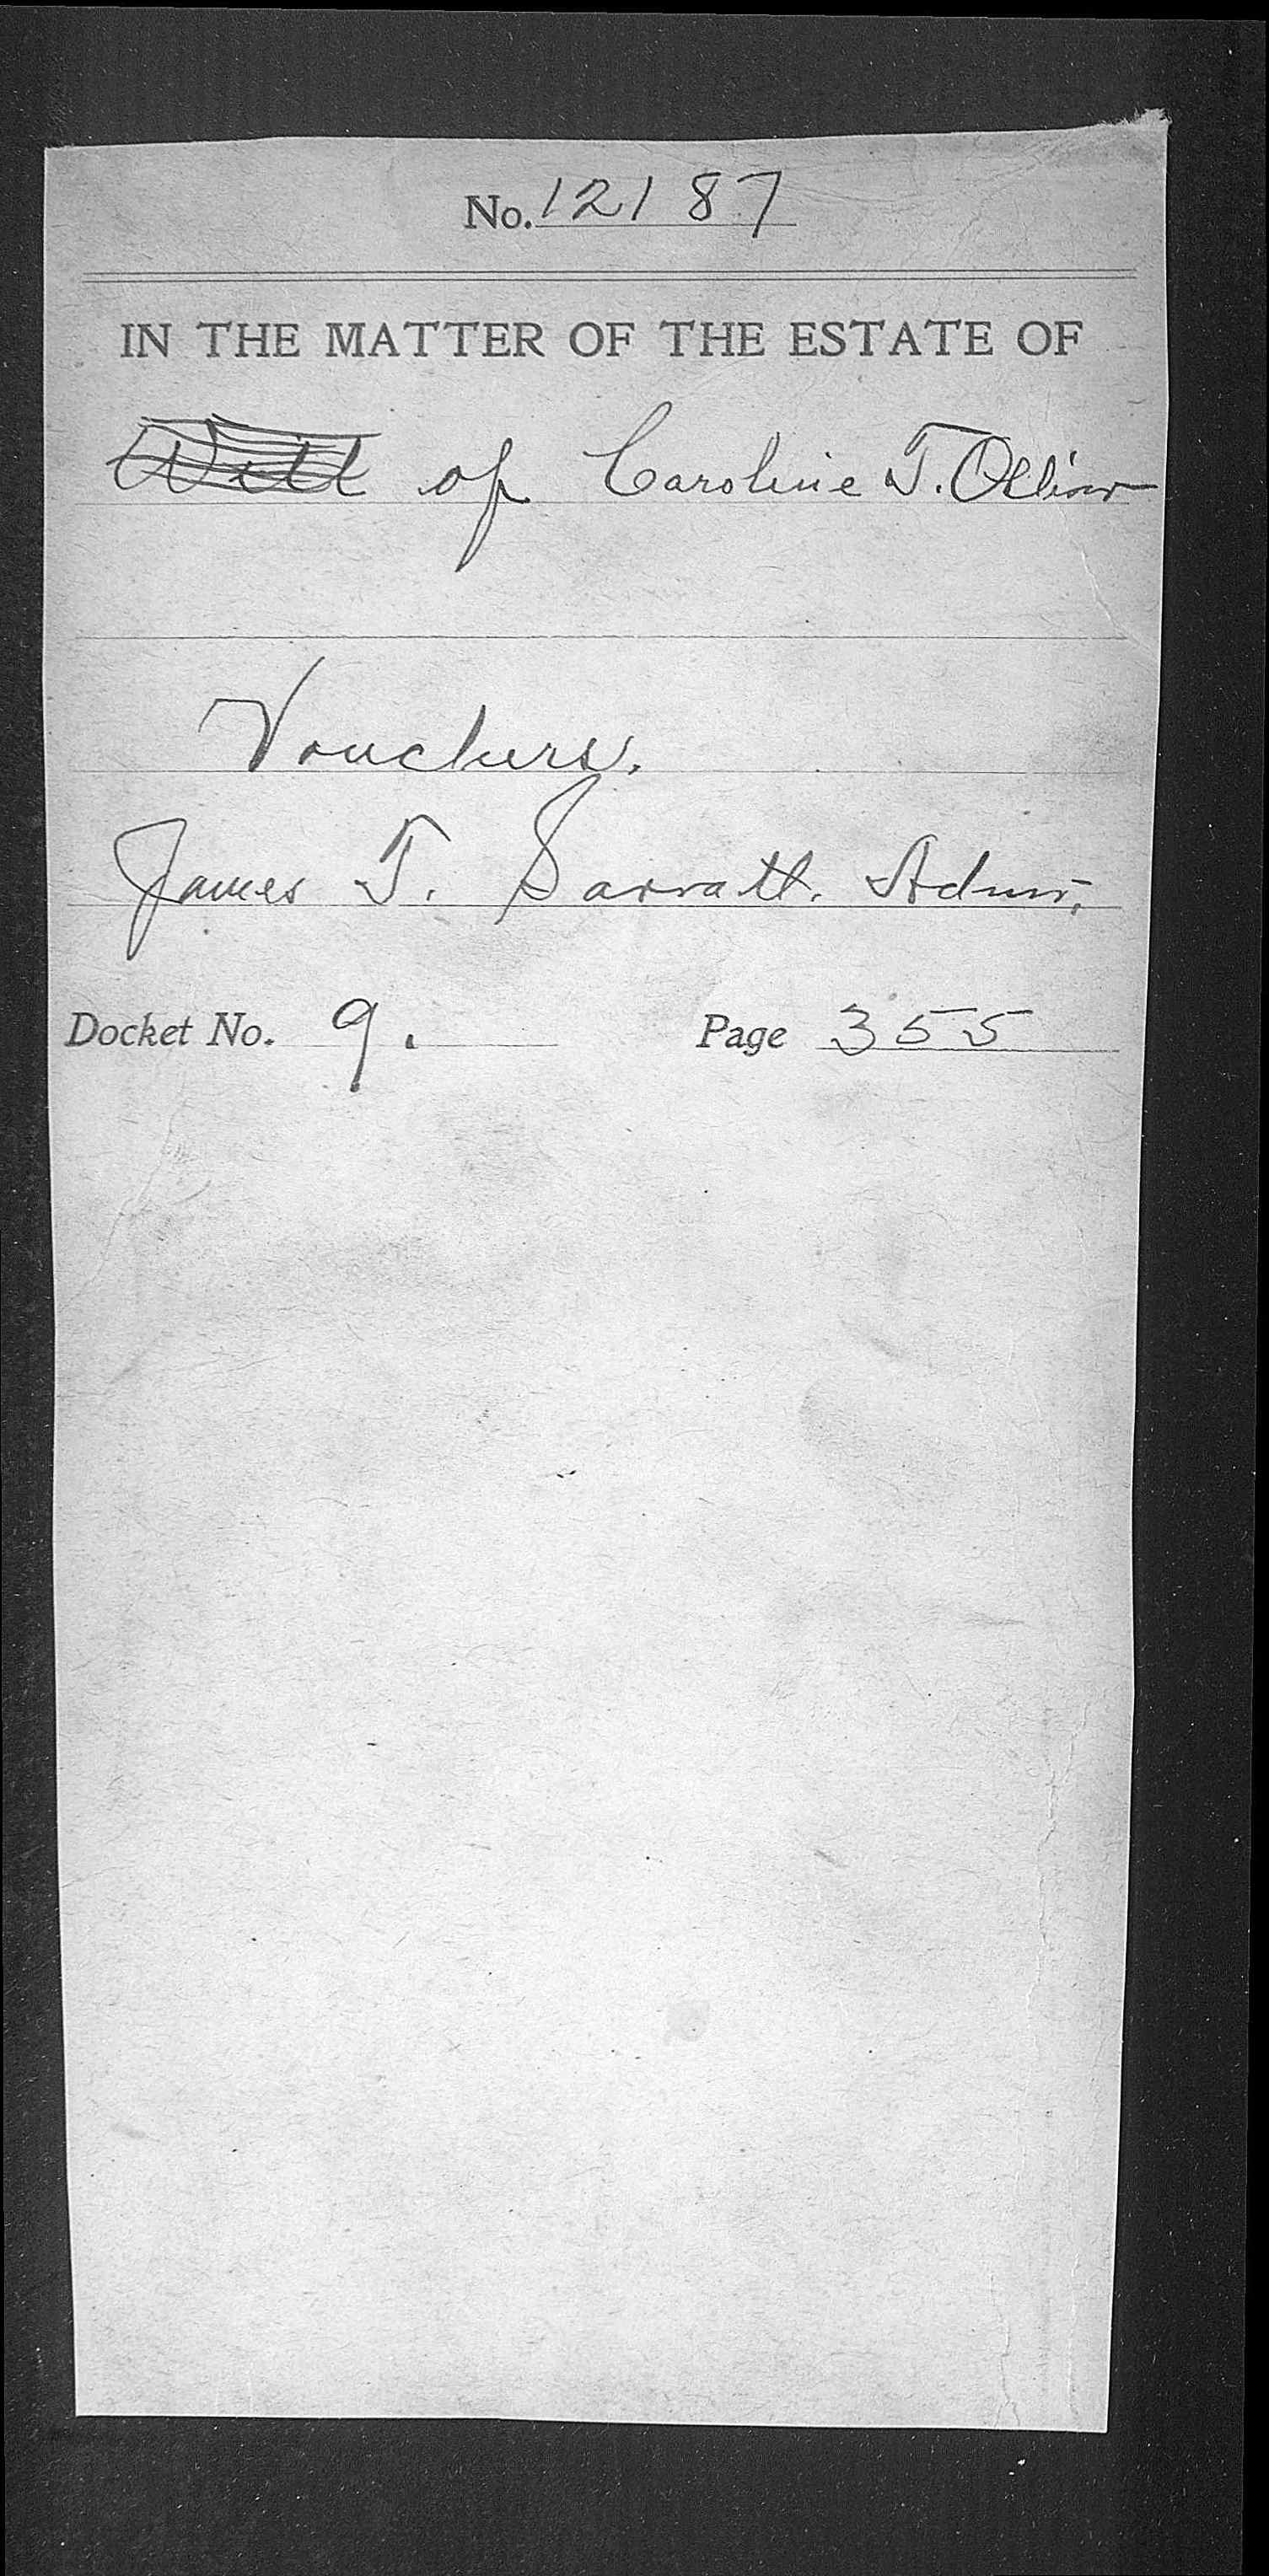 No. 12187
IN THE MATTER OF THE ESTATE OF
Will of Caroline T. Olliver
Vouchers.
James T. Sarratt. Admr.
Docket No. 9. Page 355